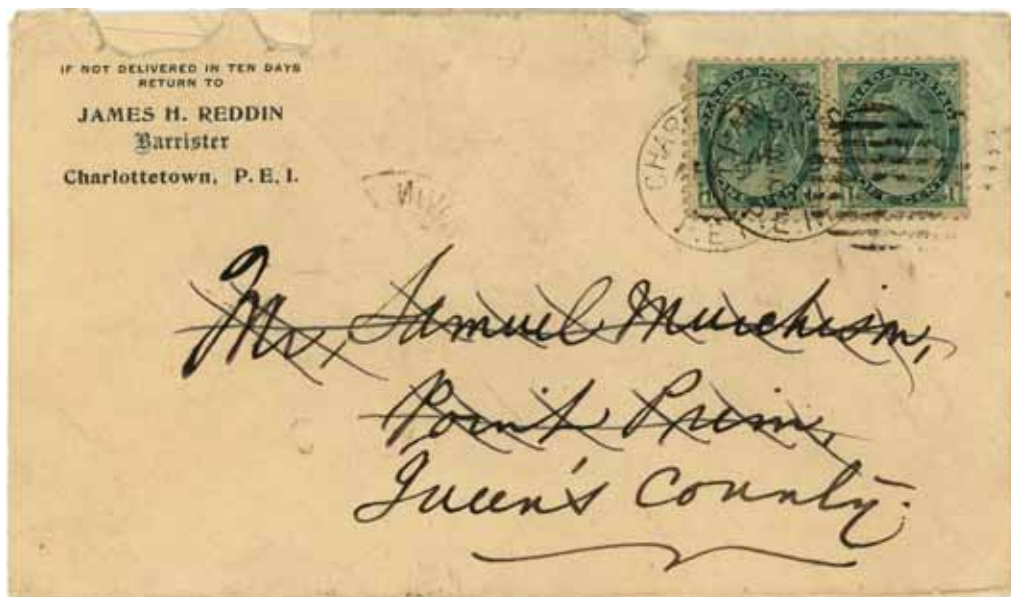 IF NOT DELIVERED IN TEN DAYS
RETURN TO
JAMES H. REDDIN
Barrister
Charlottetown, P. E. I.
CANADA POSTAGE
CANADA POSTAGE
P.E.I.
Mr. Samuel Murchison,
Point Prim,
Queen's County.